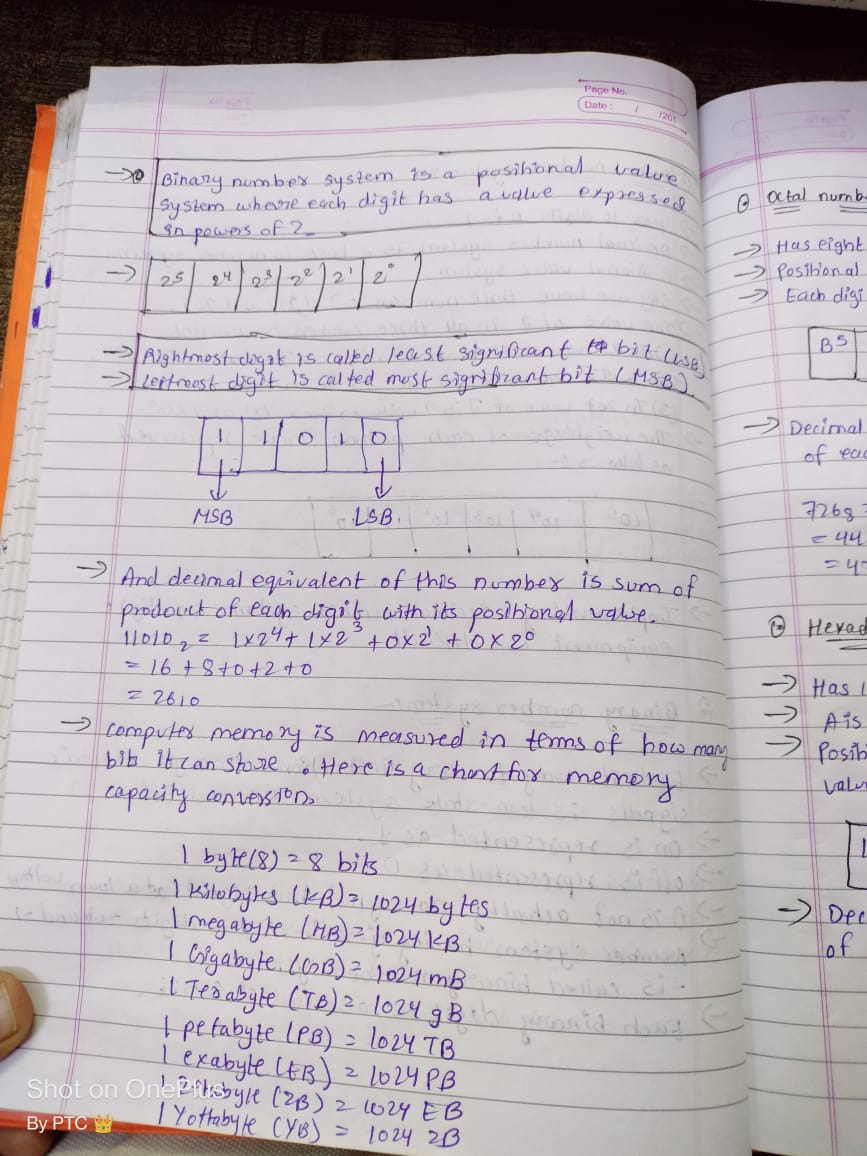 Page No.
Date : / /201
→ Binary number system is a positional value
system where each digit has a value expressed
in powers of 2
→ 2⁵ 2⁴ 2³ 2² 2¹ 2⁰
→ Rightmost digit is called least significant bit (LSB)
→ Leftmost digit is called most significant bit (MSB).
1 1 0 1 0
MSB LSB.
→ And decimal equivalent of this number is sum of
product of each digit with its positional value.
11010₂ = 1×2⁴ + 1×2³ + 0×2¹ + 0×2⁰
= 16 + 8 + 0 + 2 + 0
= 2610
→ computer memory is measured in terms of how many
bits it can store. Here is a chart for memory
capacity conversion.
1 byte(8) = 8 bits
1 kilobytes (KB) = 1024 bytes
1 megabyte (MB) = 1024 KB
1 Gigabyte (GB) = 1024 mB
1 Terabyte (TB) = 1024 gB
1 petabyte (PB) = 1024 TB
1 exabyte (EB) = 1024 PB
1 (ZB) = 1024 EB
1 Yottabyte (YB) = 1024 ZB
Octal numb
→ Has eight
→ Positional
→ Each digi
8⁵
→ Decimal
of eac
726₈ =
= 44
= 47
Hexad
→ Has 1
→ A is
→ Posit
valu
1
→ Dec
of
Shot on OnePlus
By PTC 👑